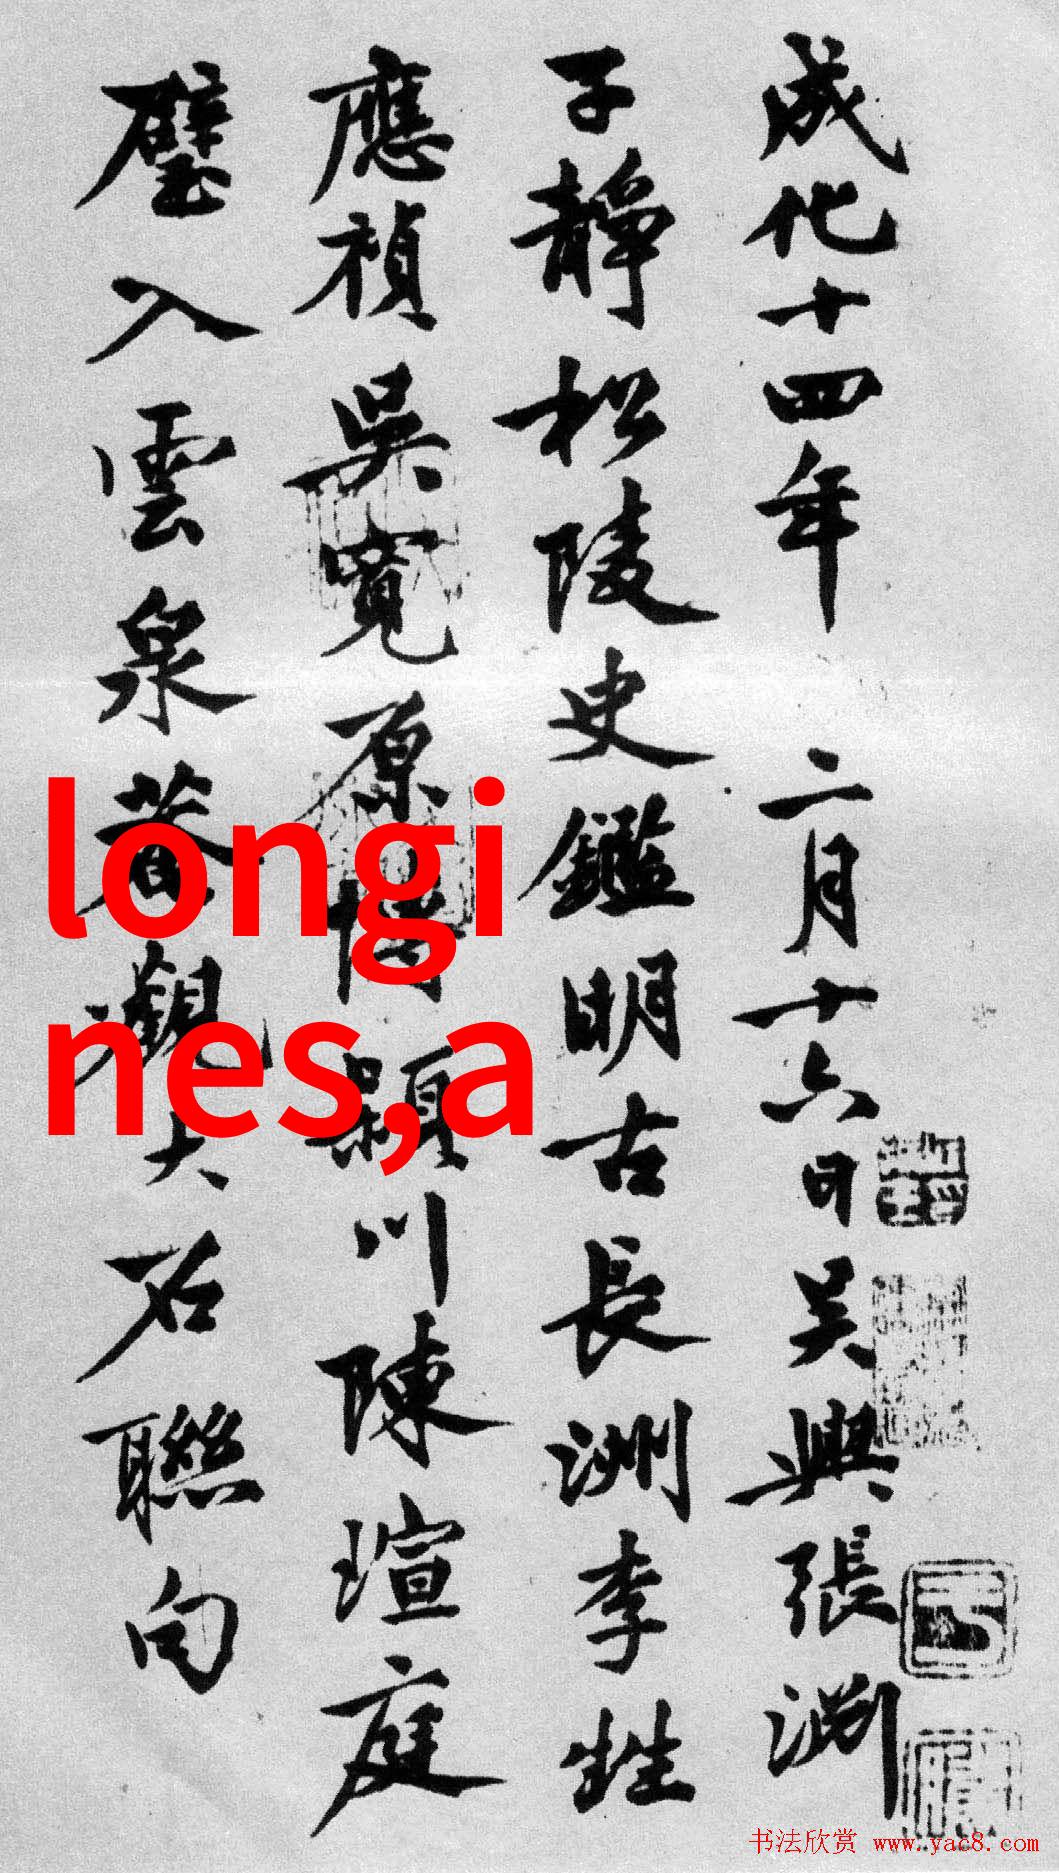 成化十四年二月十六日吳興張淵
子靜松陵史鑑明古長洲李甡
應禎吳寬原博潁川陳瑄庭
璧入雲泉菴觀大石聯句
longi
nes,a
书法欣赏 www.yac8.com